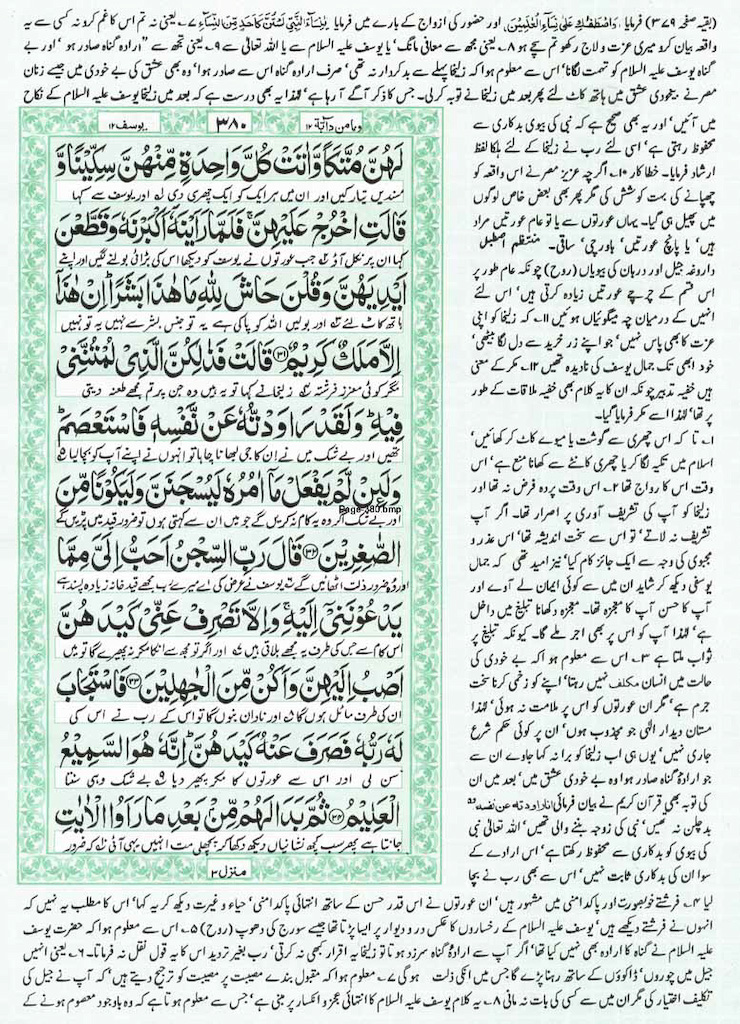 (بقیہ صفحہ ۳۷۹) فرمایا وَاصْطَفٰکِ عَلیٰ نِسَاءِ الْعٰلَمِیْنَ اور حضور کی ازواج کے بارے میں فرمایا یٰنِسَاءَ النَّبِیِّ لَسْتُنَّ کَاَحَدٍ مِّنَ النِّسَاءِ ۷۔ یعنی نہ تم اس کا غم کرو نہ کسی سے یہ
واقعہ بیان کرو میری عزت و لاج رکھو تم سچے ہو ۸۔ یعنی مجھ سے معافی مانگ' یا یوسف علیہ السلام سے یا اللہ تعالیٰ سے ۹۔ یعنی تجھ سے ارادہ گناہ صادر ہوا اور بے
گناہ یوسف علیہ السلام کو تہمت لگانا' اس سے معلوم ہوا کہ زلیخا پہلے سے بدکردار نہ تھی' صرف ارادہ گناہ اس سے صادر ہوا' وہ بھی عشق کی بے خودی میں جیسے زنان
مصر نے بیخودی عشق میں ہاتھ کاٹ لئے پھر بعد میں زلیخا نے توبہ کر لی۔ جس کا ذکر آگے آ رہا ہے' لہٰذا یہ بھی درست ہے کہ بعد میں زلیخا یوسف علیہ السلام کے نکاح
میں آئیں' اور یہ بھی صحیح ہے کہ نبی کی بیوی بدکاری سے
محفوظ رہتی ہے' اسی لئے رب نے زلیخا کے لئے ہلکا لفظ
ارشاد فرمایا۔ خطا کار ۱۰۔ اگرچہ عزیز مصر نے اس واقعہ کو
چھپانے کی بہت کوشش کی مگر پھر بھی بعض خاص لوگوں
میں پھیل ہی گیا۔ یہاں عورتوں سے یا تو عام عورتیں مراد
ہیں' یا پانچ عورتیں' باورچی' ساقی۔ منتظم اصطبل
داروغہ جیل اور دربان کی بیویاں (روح) چونکہ عام طور پر
اس قسم کے چرچے عورتیں زیادہ کرتی ہیں' اس لئے
انہیں کے درمیان چہ میگوئیاں ہوئیں ۱۱۔ کہ زلیخا کو اپنی
عزت کا بھی پاس نہیں' جو اپنے زر خرید سے دل لگا بیٹھی'
خود ابھی تک جمال یوسف کی نادیدہ تھیں ۱۲۔ مکر کے معنی
ہیں خفیہ تدبیر چونکہ ان کا یہ کلام بھی خفیہ ملاقات کے طور
پر تھا' لہٰذا اسے مکر فرمایا گیا۔
۱۔ تا کہ اس چھری سے گوشت یا میوے کاٹ کر کھائیں'
اسلام میں تکیہ لگا کر یا چھری کانٹے سے کھانا منع ہے' اس
وقت اس کا رواج تھا ۲۔ اس وقت پردہ فرض نہ تھا اور
زلیخا کو آپ کی تشریف آوری پر اصرار تھا۔ اگر آپ
تشریف نہ لاتے' تو اس سے سخت اندیشہ تھا' اس عذر و
مجبوری کی وجہ سے ایک جائز کام کیا' نیز امید تھی کہ جمال
یوسفی دیکھ کر شاید ان میں سے کوئی ایمان لے آوے اور
آپ کا حسن آپ کا معجزہ تھا۔ معجزہ دکھانا تبلیغ میں داخل
ہے' لہٰذا آپ کو اس پر بھی اجر ملے گا۔ کیونکہ تبلیغ پر
ثواب ملتا ہے ۳۔ اس سے معلوم ہوا کہ بے خودی کی
حالت میں انسان مکلف نہیں رہتا' اپنے کو زخمی کرنا سخت
جرم ہے' مگر ان عورتوں کو اس پر ملامت نہ ہوئی' لہٰذا
مستان دیدار الٰہی جو مجذوب ہوں' ان پر کوئی حکم شرع
جاری نہیں' یوں ہی اب زلیخا کو برا نہ کہا جاوے ان سے
جو ارادہ گناہ صادر ہوا وہ بے خودی عشق میں' بعد میں ان
کی توبہ بھی قرآن کریم نے بیان فرمائی انا راودته عن نفسه وہ
بدچلن نہ تھیں' نبی کی زوجہ بننے والی تھیں' اللہ تعالیٰ نبی
کی بیوی کو بدکاری سے محفوظ رکھتا ہے' اس ارادے کے
سوا ان کی بدکاری ثابت نہیں' اس سے بھی رب نے بچا
وما من دآبۃ ۱۲
۳۸۰
یوسف ۱۲
لَهُنَّ مُتَّكَاً وَّاٰتَتْ كُلَّ وَاحِدَةٍ مِّنْهُنَّ سِكِّيْنًا وَّ
مسندیں تیار کیں اور ان میں ہر ایک کو ایک چھری دی اور یوسف سے کہا
قَالَتِ اخْرُجْ عَلَيْهِنَّ ۚ فَلَمَّا رَاَيْنَهٗۤ اَكْبَرْنَهٗ وَقَطَّعْنَ
کہا ان پر نکل آؤ جب عورتوں نے یوسف کو دیکھا اس کی بڑائی بولنے لگیں اور اپنے
اَيْدِيَهُنَّ وَقُلْنَ حَاشَ لِلّٰهِ مَا هٰذَا بَشَرًا ؕ اِنْ هٰذَاۤ
ہاتھ کاٹ لئے اور بولیں اللہ کو پاکی ہے یہ تو جنس بشر سے نہیں یہ تو نہیں
اِلَّا مَلَكٌ كَرِيْمٌ ﴿۳۱﴾ قَالَتْ فَذٰلِكُنَّ الَّذِيْ لُمْتُنَّنِيْ
مگر کوئی معزز فرشتہ زلیخا نے کہا تو یہ ہیں وہ جن پر تم مجھے طعنہ دیتی
فِيْهِ ؕ وَلَقَدْ رَاوَدْتُّهٗ عَنْ نَّفْسِهٖ فَاسْتَعْصَمَ ؕ
تھیں اور بے شک میں نے ان کا جی لبھانا چاہا تو انہوں نے اپنے آپ کو بچایا
وَلَئِنْ لَّمْ يَفْعَلْ مَاۤ اٰمُرُهٗ لَيُسْجَنَنَّ وَلَيَكُوْنًا مِّنَ
اور بے شک اگر وہ یہ کام نہ کریں گے جو میں ان سے کہتی ہوں تو ضرور قید میں پڑیں گے
Page-380.bmp
الصّٰغِرِيْنَ ﴿۳۲﴾ قَالَ رَبِّ السِّجْنُ اَحَبُّ اِلَيَّ مِمَّا
اور وہ ضرور ذلت اٹھائیں گے یوسف نے عرض کی اے میرے رب مجھے قید خانہ زیادہ پسند ہے
يَدْعُوْنَنِيْۤ اِلَيْهِ ۚ وَاِلَّا تَصْرِفْ عَنِّيْ كَيْدَهُنَّ
اس کام سے جس کی طرف یہ مجھے بلاتی ہیں اور اگر تو مجھ سے ان کا مکر نہ پھیرے گا تو میں
اَصْبُ اِلَيْهِنَّ وَاَكُنْ مِّنَ الْجٰهِلِيْنَ ﴿۳۳﴾ فَاسْتَجَابَ
ان کی طرف مائل ہوں گا اور نادان بنوں گا تو اس کے رب نے اس کی
لَهٗ رَبُّهٗ فَصَرَفَ عَنْهُ كَيْدَهُنَّ ؕ اِنَّهٗ هُوَ السَّمِيْعُ
سن لی اور اس سے عورتوں کا مکر پھیر دیا بے شک وہی سنتا
الْعَلِيْمُ ﴿۳۴﴾ ثُمَّ بَدَا لَهُمْ مِّنْۢ بَعْدِ مَا رَاَوُا الْاٰيٰتِ
جانتا ہے پھر سب کچھ نشانیاں دیکھ دکھا کر پچھلی مت انہیں یہی آئی کہ ضرور
منزل ۳
لیا ۴۔ فرشتے خوبصورت اور پاکدامنی میں مشہور ہیں' ان عورتوں نے اس قدر حسن کے ساتھ انتہائی پاکدامنی' حیاء و غیرت دیکھ کر یہ کہا' اس کا مطلب یہ نہیں کہ
انہوں نے فرشتے دیکھے ہیں' یوسف علیہ السلام کے رخساروں کا عکس در و دیوار پر ایسا پڑتا تھا جیسے سورج کی دھوپ (روح) ۵۔ اس سے معلوم ہوا کہ حضرت یوسف
علیہ السلام نے گناہ کا ارادہ بھی نہیں کیا تھا' اگر آپ سے ارادہ گناہ سرزد ہوتا تو زلیخا یہ اقرار کبھی نہ کرتی' رب بغیر تردید اس کا یہ قول نقل نہ فرماتا۔ ۶۔ یعنی انہیں
جیل میں چوروں' ڈاکوؤں کے ساتھ رہنا پڑے گا جس میں انکی ذلت ہو گی ۷۔ معلوم ہوا کہ مقبول بندے مصیبت پر مصیبت کو ترجیح دیتے ہیں' کہ آپ نے جیل کی
تکلیف اختیار کی مگر ان میں سے کسی کی بات نہ مانی ۸۔ یہ کلام یوسف علیہ السلام کا انتہائی عجز و انکسار پر مبنی ہے' جس سے معلوم ہوتا ہے کہ وہ باوجود معصوم ہونے کے